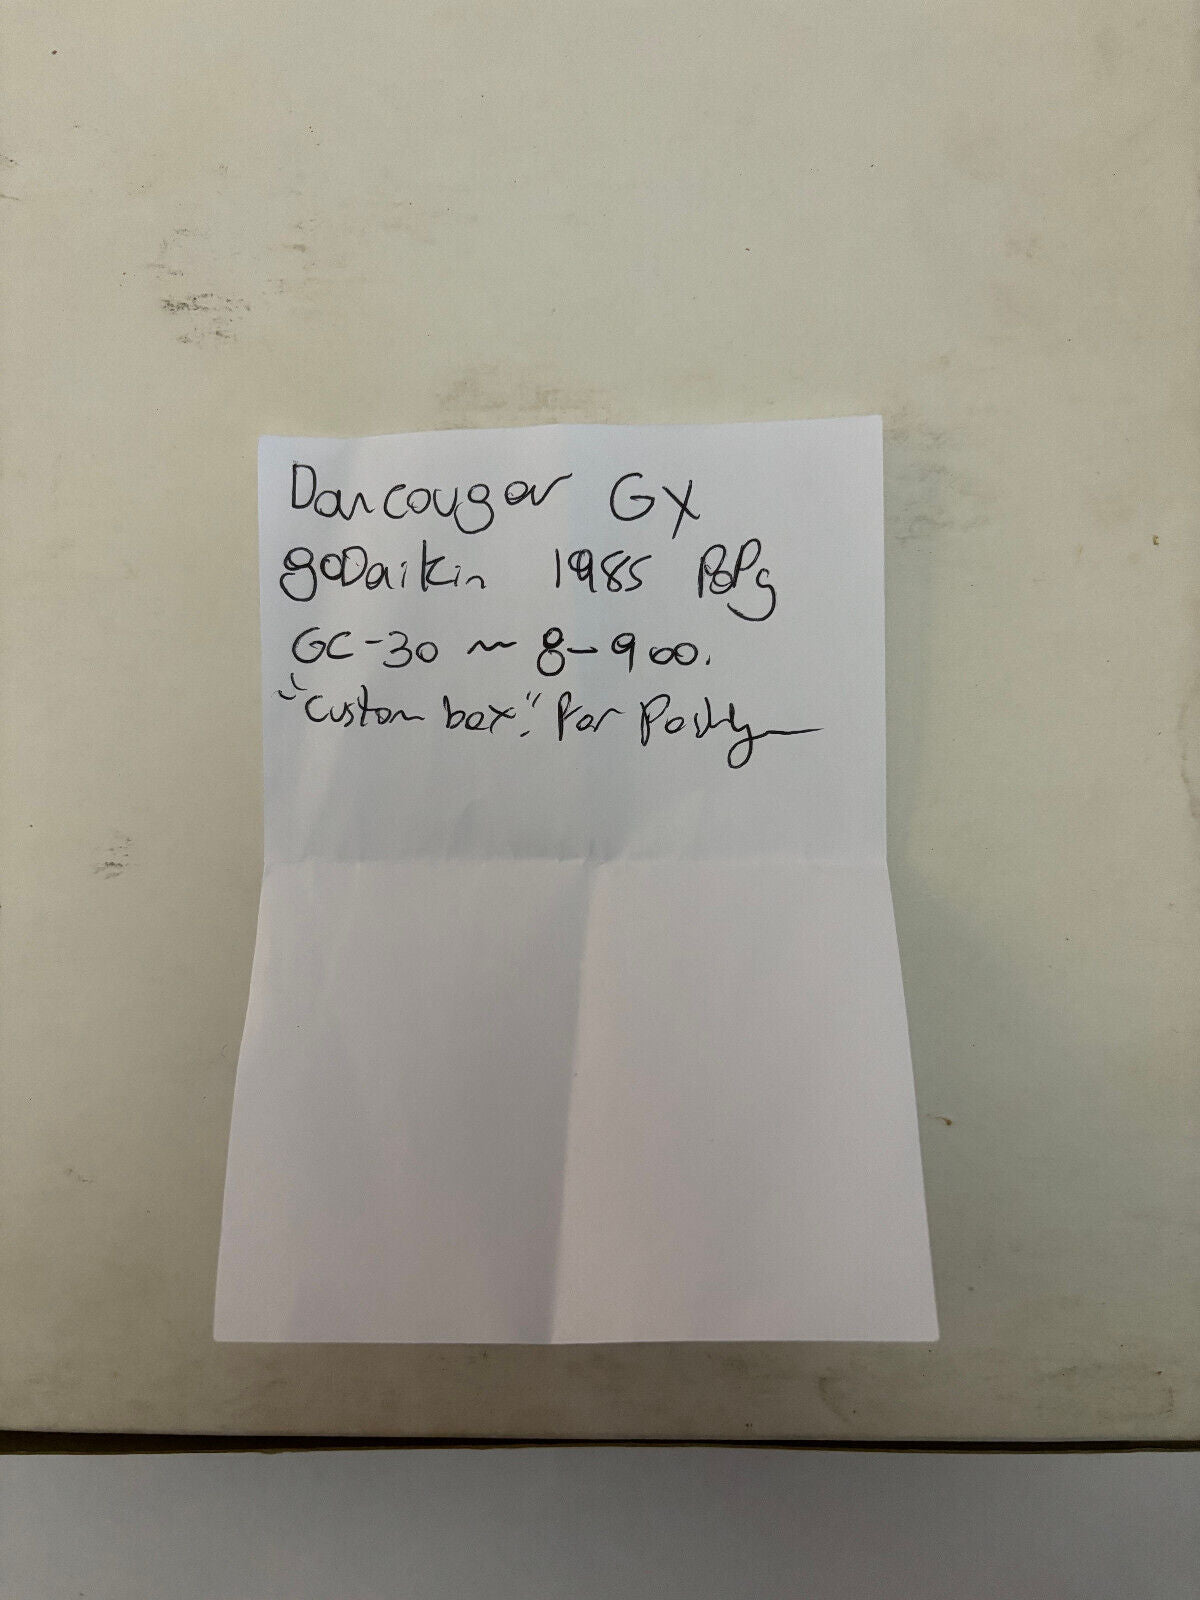 Dancougar GX
goDaikin 1985 PoPy
GC-30 ~ 8-900.
"Custom box." For